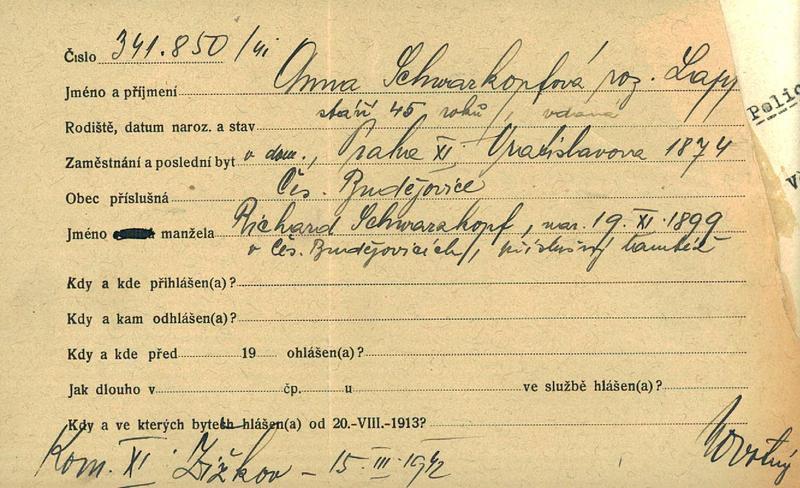 Číslo 341.850/41
Jméno a příjmení Anna Schwarkopfová roz. Lapp
stáří 45 roků, vdaná
Rodiště, datum naroz. a stav
Zaměstnání a poslední byt v dom., Praha XI Vratislavova 1874
Obec příslušná Čes. Budějovice
Jméno manžela Richard Schwarzkopf, nar. 19. XI. 1899
v Čes. Budějovicích, příslušný tamtéž
Kdy a kde přihlášen(a)?
Kdy a kam odhlášen(a)?
Kdy a kde před 19 ohlášen(a)?
Jak dlouho v čp. u ve službě hlášen(a)?
Kdy a ve kterých bytech hlášen(a) od 20.-VIII.-1913?
Kom. XI Žižkov - 15 III 1942
Novotný
Polic
V